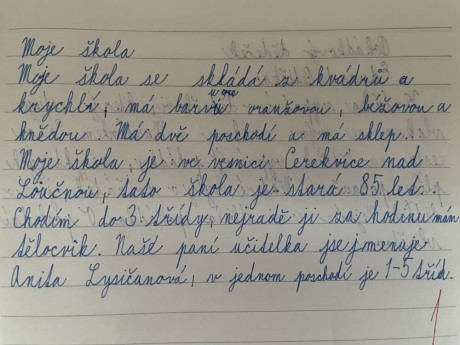 Moje škola
Moje škola se skládá z kvádrů a
krychlí, má barvu oranžovou, béžovou a
hnědou. Má dvě poschodí a má sklep.
Moje škola je ve vesnici Cerekvice nad
Loučnou, tato škola je stará 85 let.
Chodím do 3 třídy, nejradě ji za hodinu mám
tělocvik. Naše paní učitelka jsejmenuje
Anita Lysičanová, v jednom poschodí je 1-5 tříd.
1